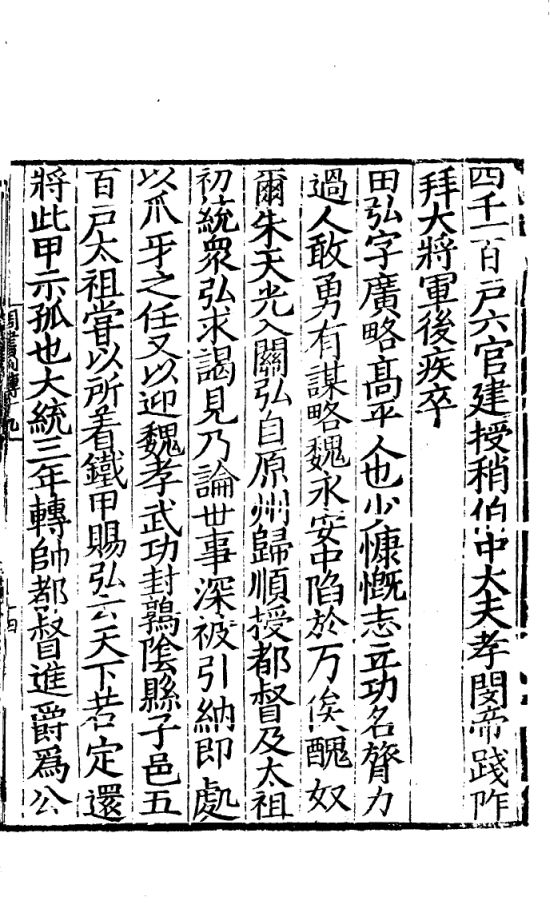 四千一百戸六官建授稍伯中大夫孝閔帝踐阼
拜大將軍後疾卒
田弘字廣略高平人也少慷慨志立功名膂力
過人敢勇有謀略魏永安中陷於万俟醜奴
爾朱天光入關弘自原州歸順授都督及太祖
初統衆弘求謁見乃論世事深被引納即處
以爪牙之任又以迎魏孝武功封鶉陰縣子邑五
百戸太祖甞以所着鐵甲賜弘云天下若定還
將此甲示孤也大統三年轉帥都督進爵爲公